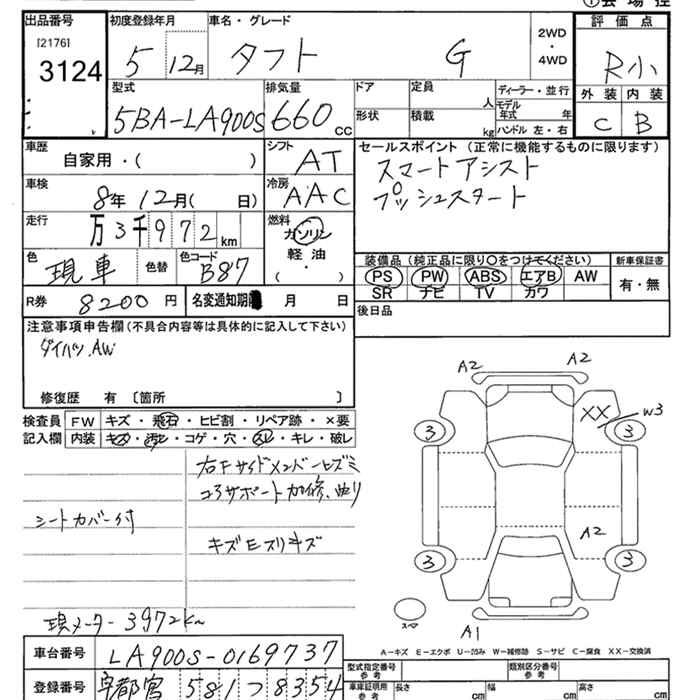 出品番号 初度登録年月 車名・グレード 評価点
[2176] 3124 5 12月 タフト G 2WD・4WD R小
型式 排気量 ドア 定員 人 ディーラー・並行 外装 内装
5BA-LA900S 660cc 形状 積載 kg モデル年式 年 ハンドル 左・右 C B
車歴 自家用・( ) シフト AT セールスポイント (正常に機能するものに限ります)
車検 8年12月( 日) 冷房 AAC スマートアシスト
プッシュスタート
走行 万3千972km 燃料 ガソリン
軽油
( ・ )
色 現車 色替 色コード B87 装備品 (純正品に限り○をつけてください) 新車保証書
PS PW ABS エアB AW 有・無
SR ナビ TV カワ
R券 8200円 名変通知期限 月 日 後日品
注意事項申告欄(不具合内容等は具体的に記入して下さい)
ダイハツ.AW
修復歴 有 〔箇所 〕
検査員 FW キズ・飛石・ヒビ割・リペア跡・×要
記入欄 内装 キズ・汚レ・コゲ・穴・スレ・キレ・破レ
右Fサイドメンバーヒズミ
コアサポート加修、曲り
シートカバー付
キズモスリキズ
現メーター3972km
A2 A2
XX W3
3 3
A2
3 3
スマ A1
A-キズ E-エクボ U-凹み W-補修跡 S-サビ C-腐食 XX-交換済
車台番号 LA900S-0169737
登録番号 宇都宮 581つ8354
型式指定番号 参考 類別区分番号 参考
車庫証明用 参考 長さ cm 幅 cm 高さ cm